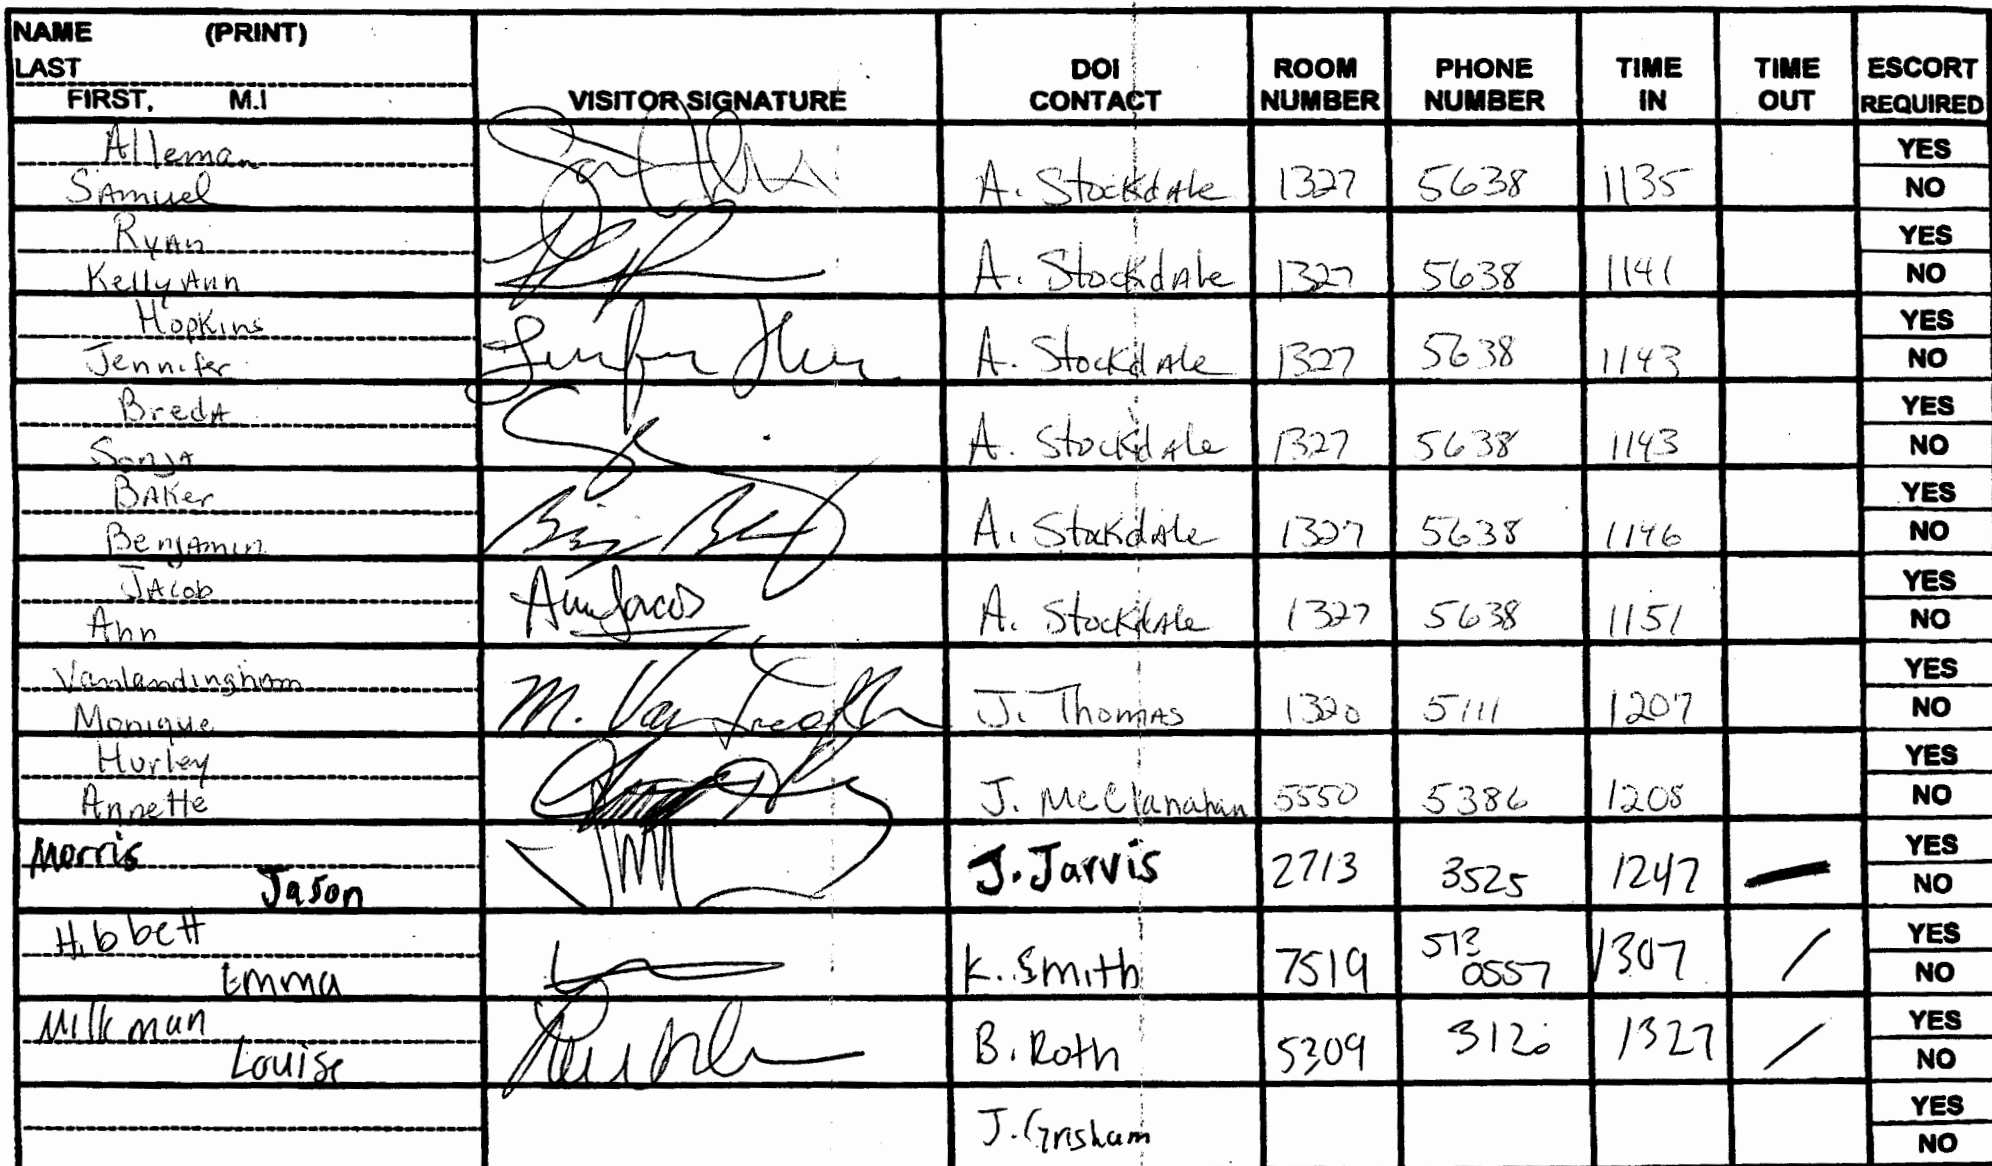 NAME (PRINT)
LAST
FIRST, M.I
VISITOR SIGNATURE
DOI CONTACT
ROOM NUMBER
PHONE NUMBER
TIME IN
TIME OUT
ESCORT REQUIRED
Alleman YES
Samuel A. Stockdale 1327 5638 1135 NO
Ryan YES
Kelly Ann A. Stockdale 1327 5638 1141 NO
Hopkins YES
Jennifer A. Stockdale 1327 5638 1143 NO
Breda YES
Sonja A. Stockdale 1327 5638 1143 NO
Baker YES
Benjamin A. Stockdale 1327 5638 1146 NO
Jacob YES
Ann A. Stockdale 1327 5638 1151 NO
Vanlandingham YES
Monique J. Thomas 1320 5111 1207 NO
Hurley YES
Annette J. McClanahan 5550 5386 1208 NO
Morris YES
Jason J. Jarvis 2713 3525 1247 — NO
Hibbett YES
Emma K. Smith 7519 513 0557 1307 / NO
Milkman YES
Louise B. Roth 5309 1327 / NO
YES
J. Grisham NO